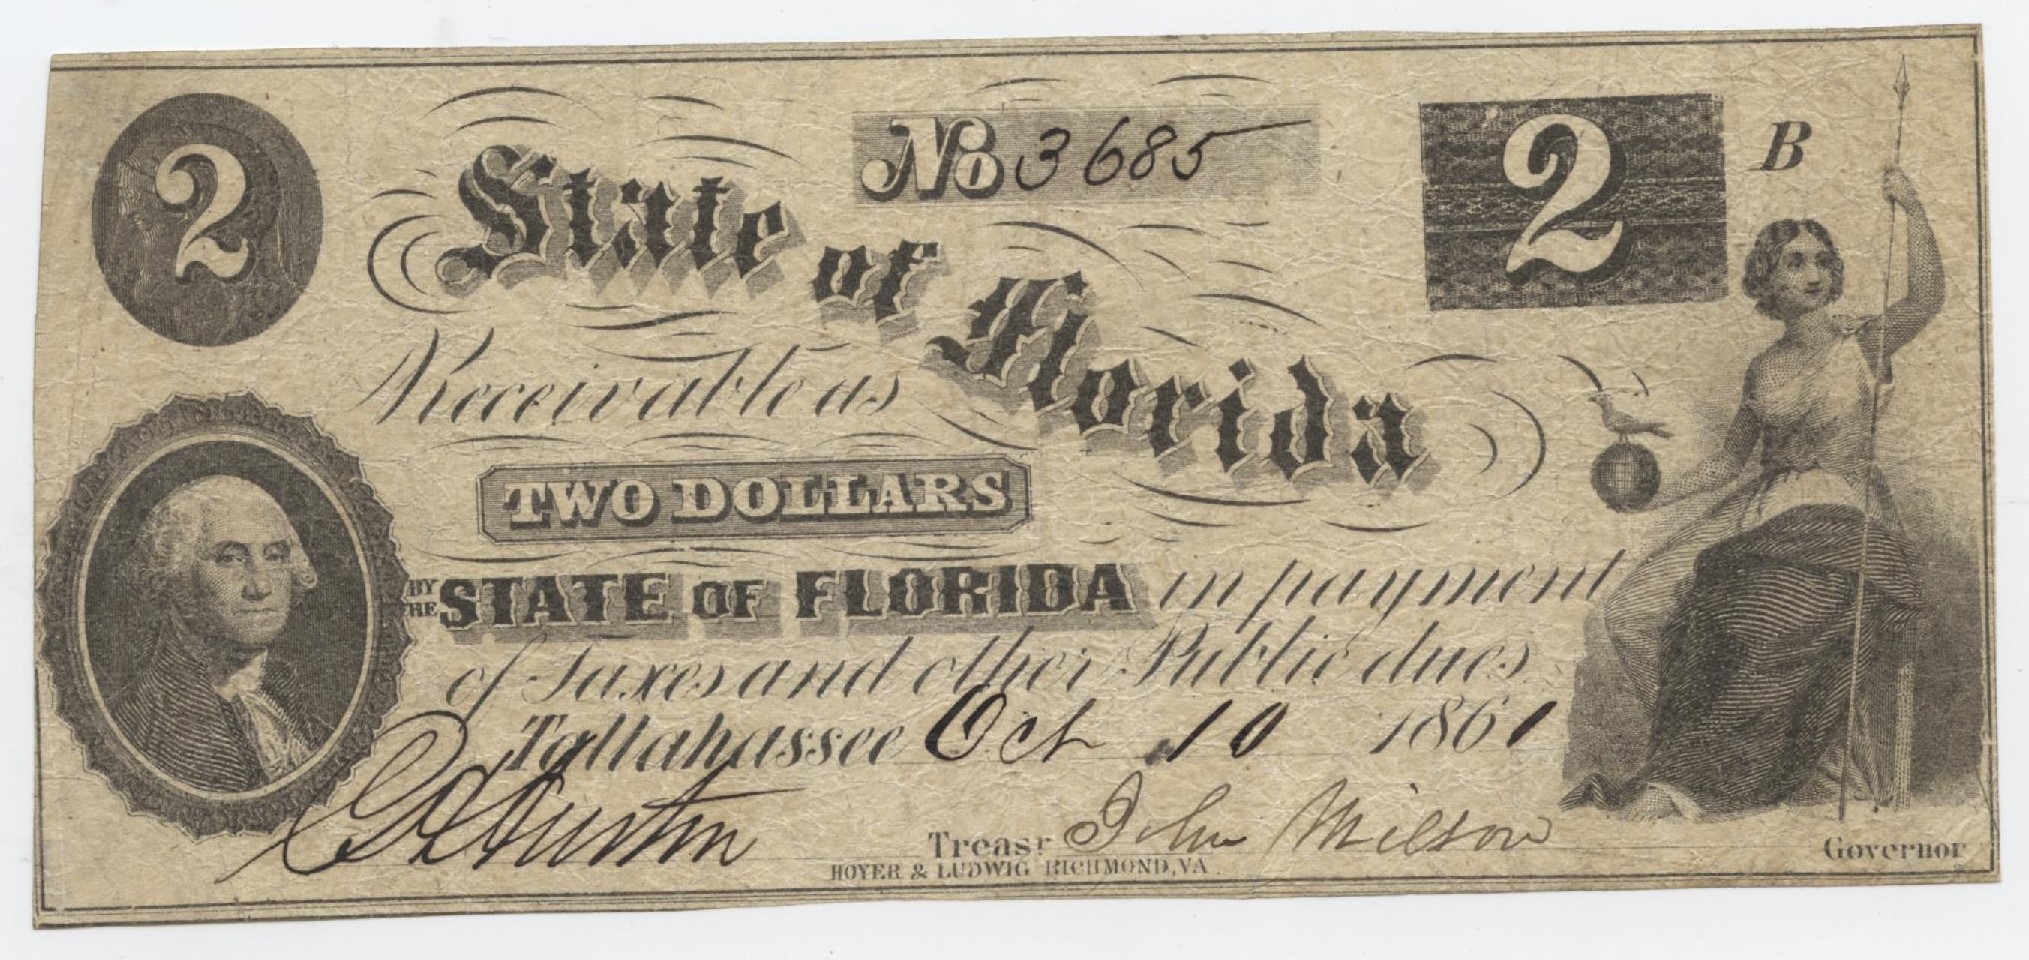 2
No 3685
2
B
State of Florida
Receivable as
TWO DOLLARS
BY THE STATE OF FLORIDA in payment
of Taxes and other Public dues
Tallahassee Oct 10 1861
C H Austin Treasr John Milton Governor
HOYER & LUDWIG RICHMOND, VA